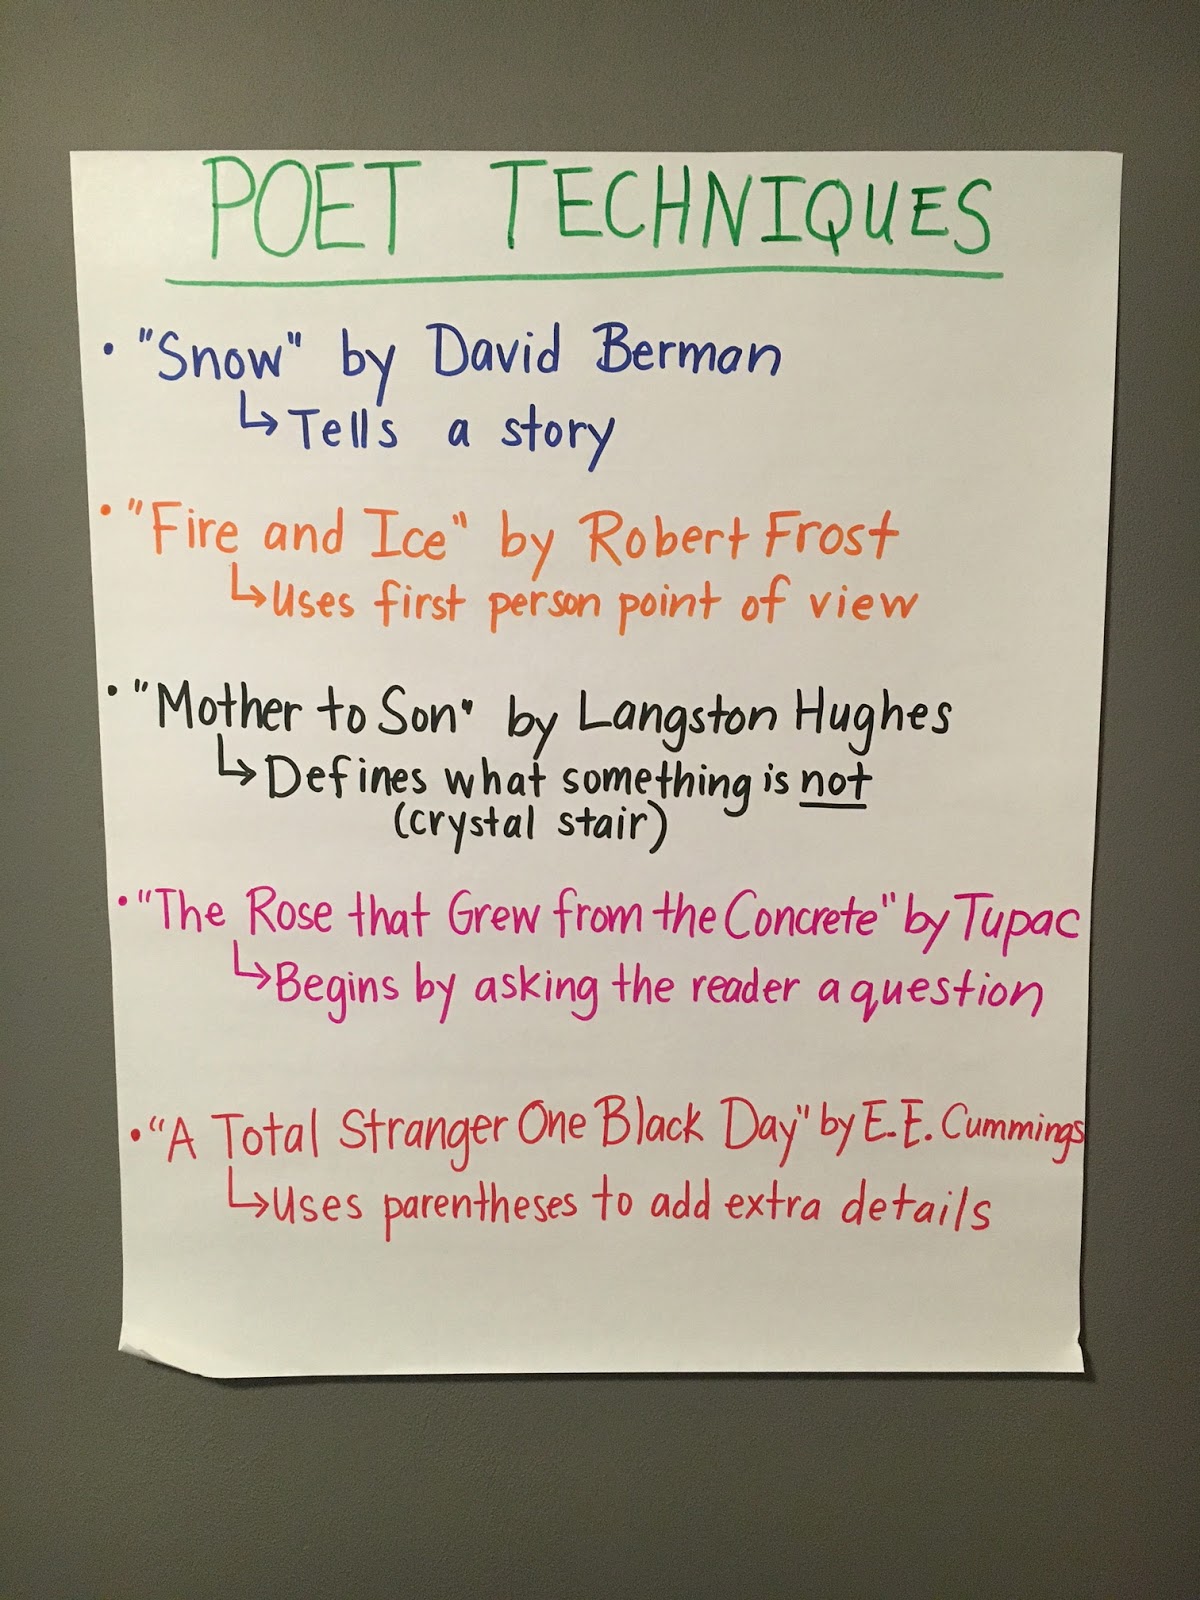 POET TECHNIQUES
• "Snow" by David Berman
↳ Tells a story
• "Fire and Ice" by Robert Frost
↳ Uses first person point of view
• "Mother to Son" by Langston Hughes
↳ Defines what something is not
(crystal stair)
• "The Rose that Grew from the Concrete" by Tupac
↳ Begins by asking the reader a question
• "A Total Stranger One Black Day" by E.E. Cummings
↳ Uses parentheses to add extra details